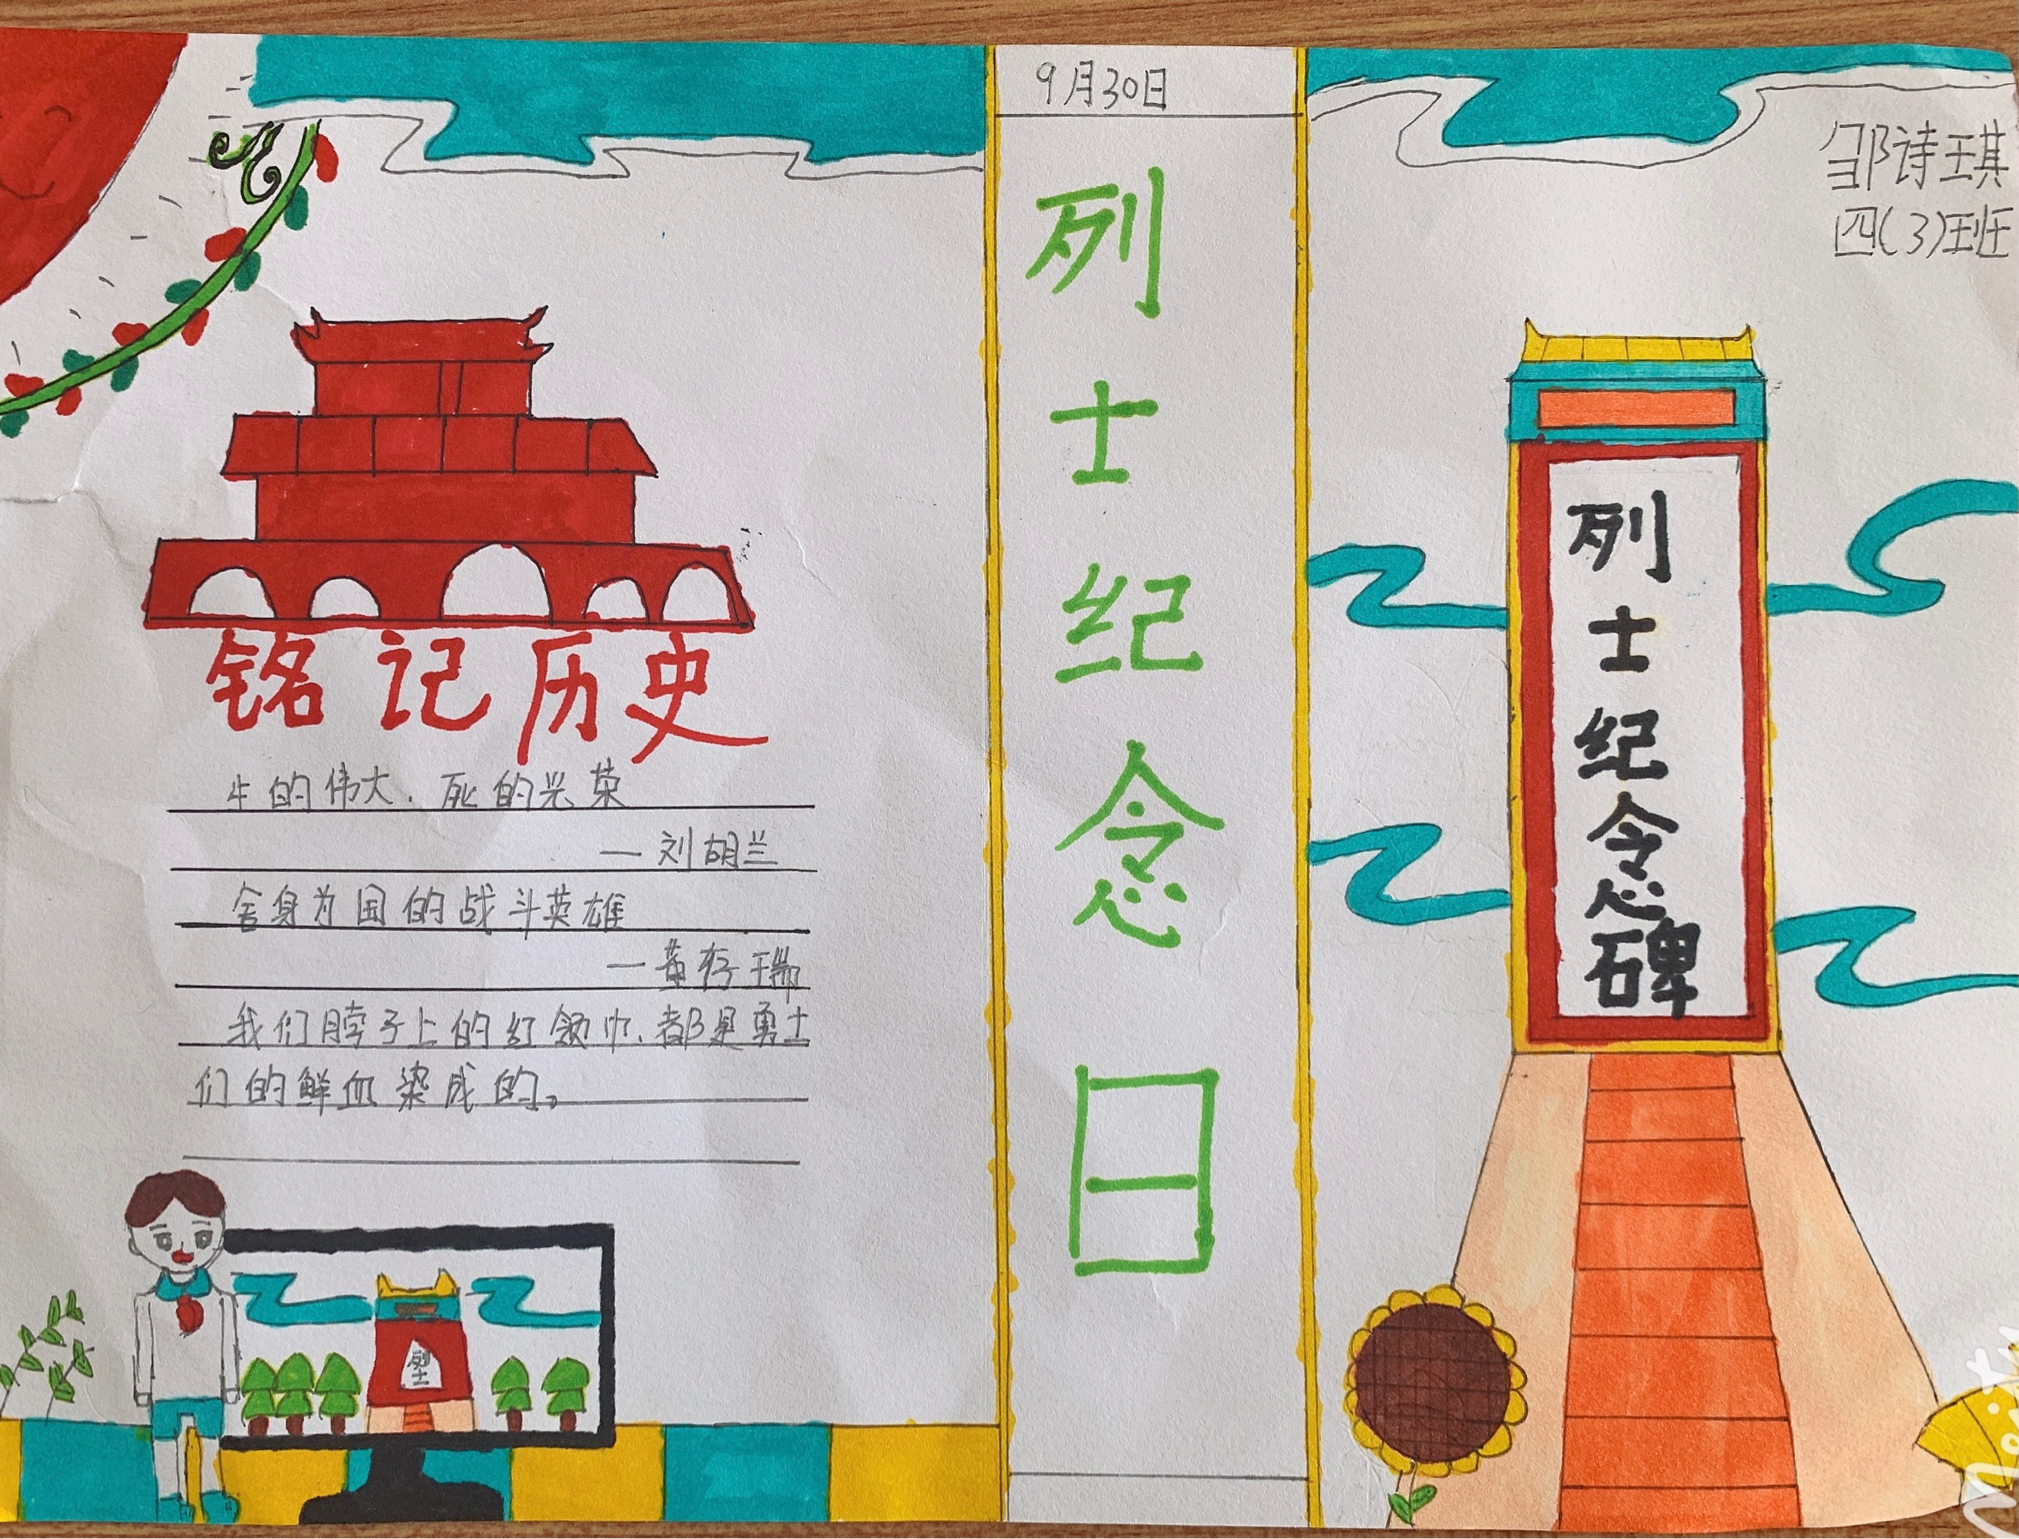 铭记历史
生的伟大.死的光荣
—刘胡兰
舍身为国的战斗英雄
—黄存瑞
我们脖子上的红领巾、都是勇士
们的鲜血染成的。
烈士
9月30日
烈士纪念日
邹诗琪
四(3)班
烈士纪念碑